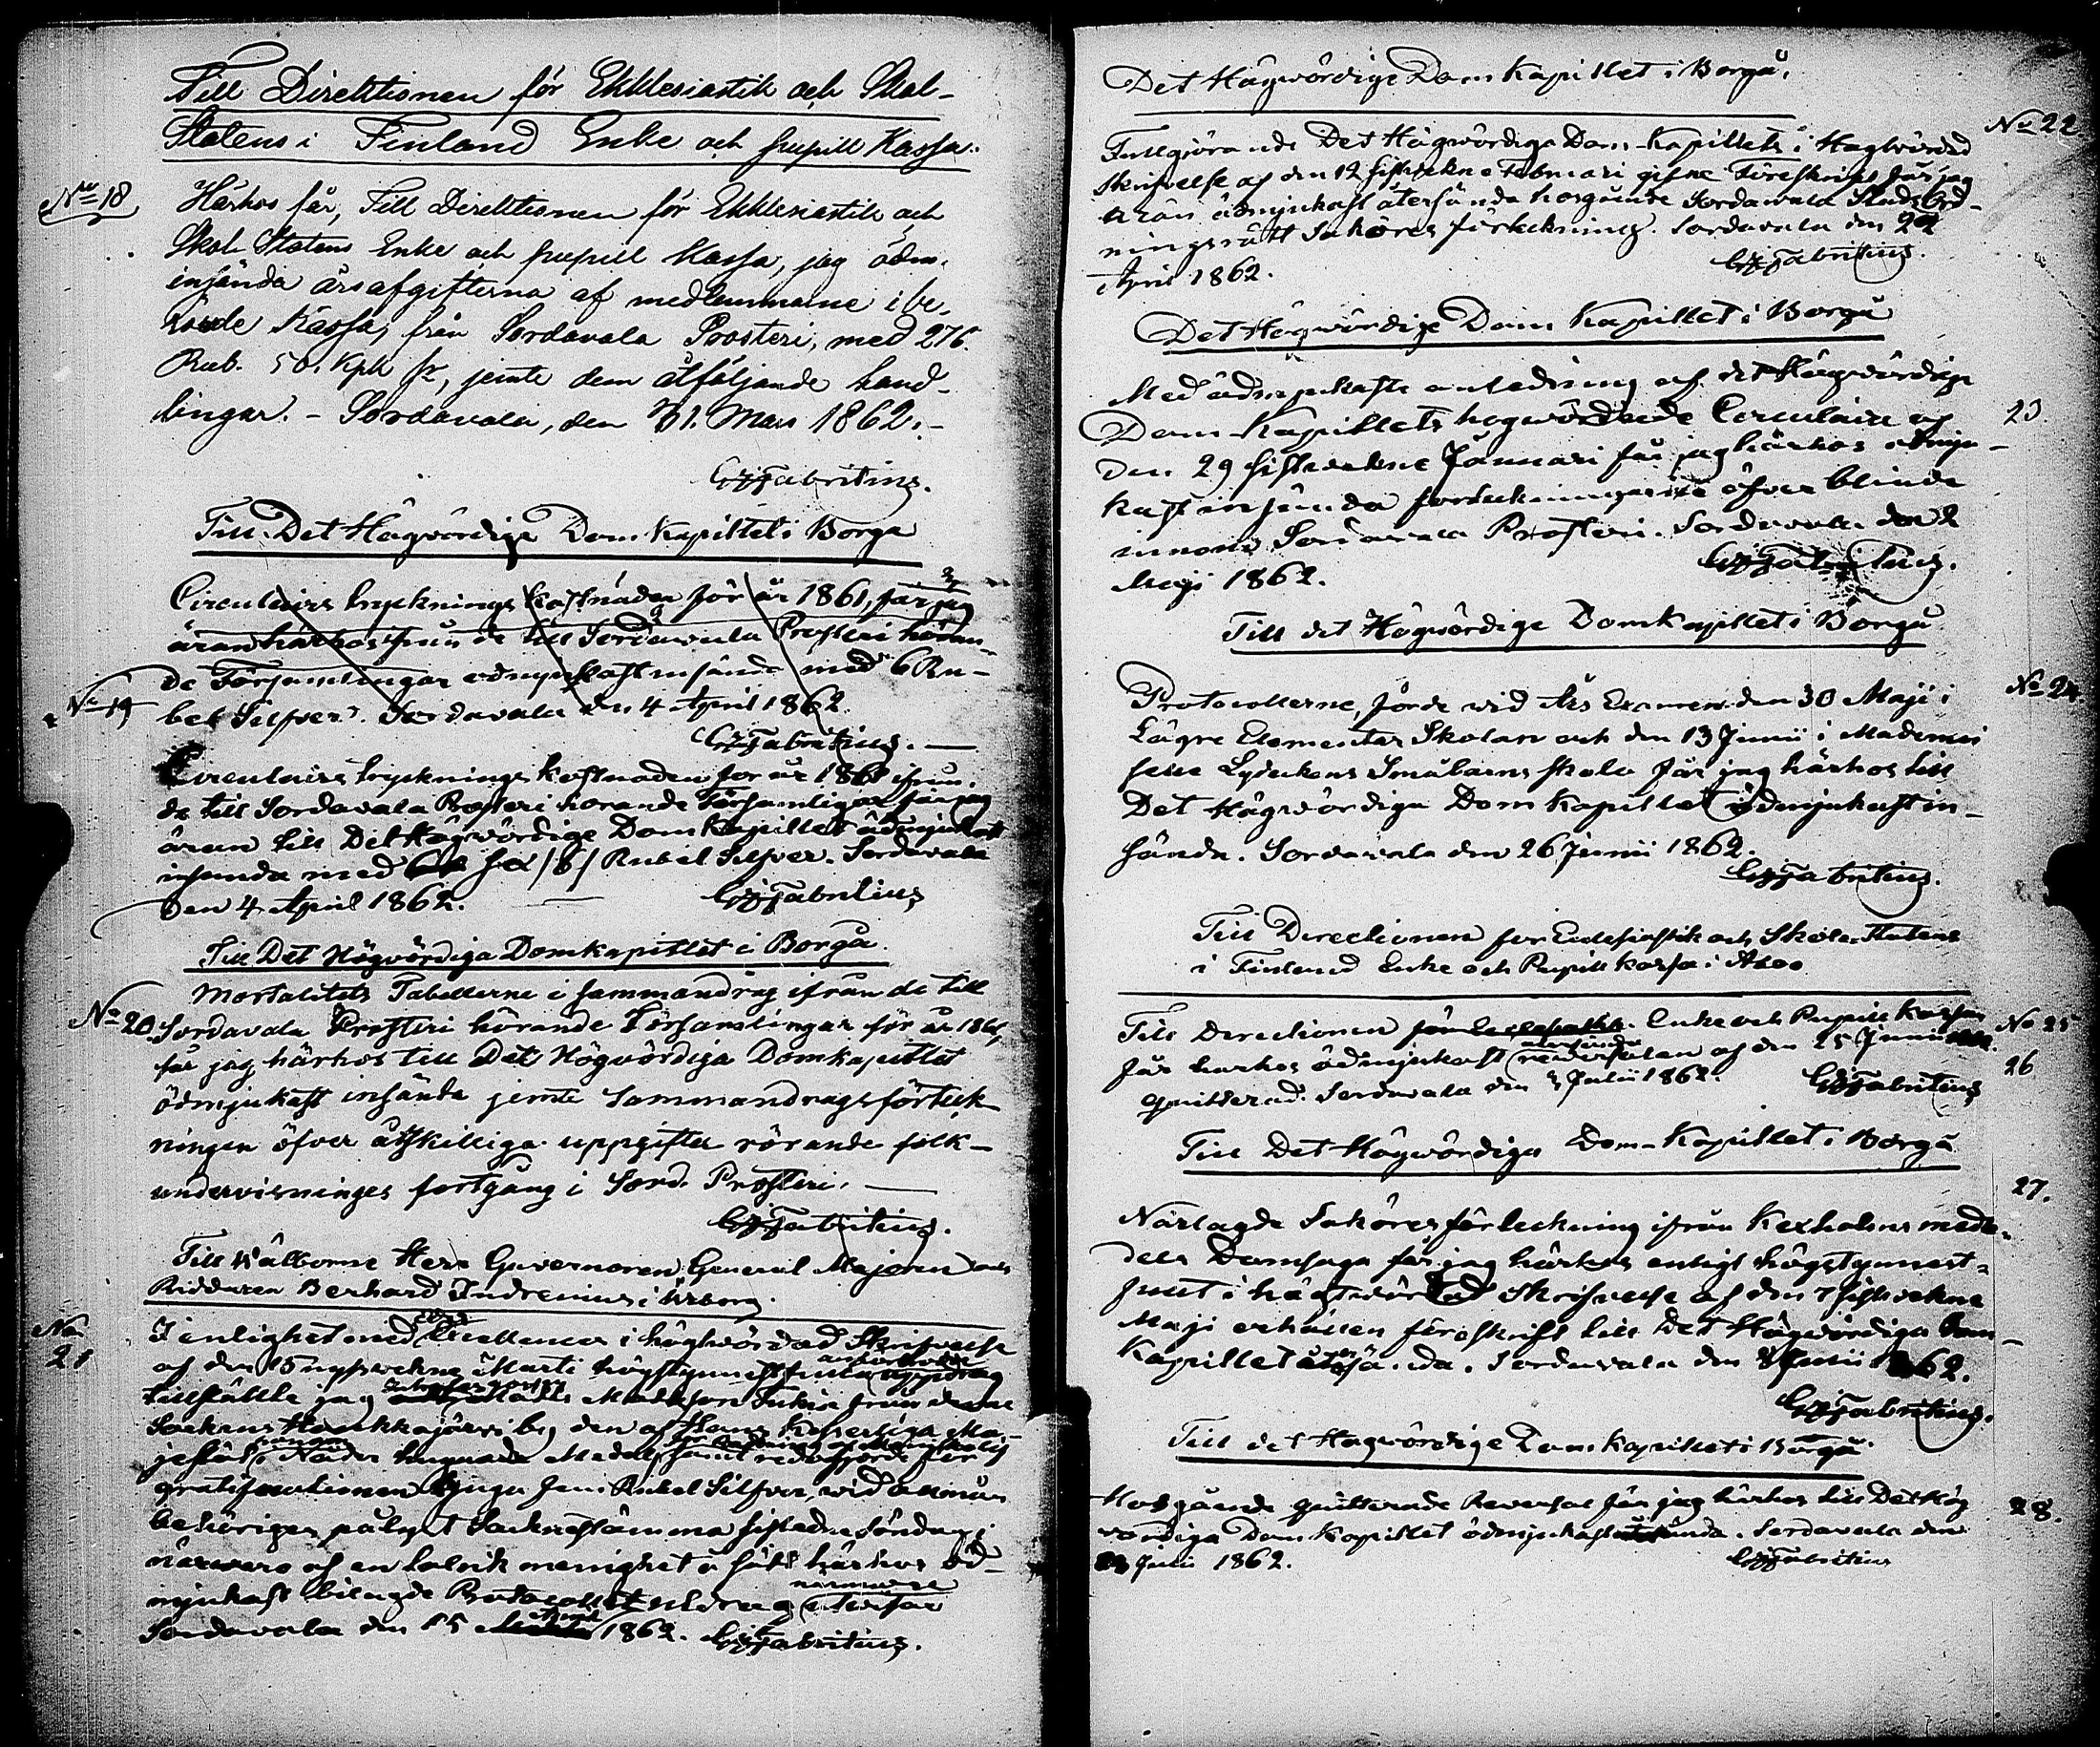 Till Direktionen för Ekklesiastik och Skol-
Statens i Finland Enke och pupill Kassa.
No 18
Härhos får, Till Direktionen för Ekklesiastik och
Skol Statens Enke och pupill Kassa, jag ödm.
insända årsafgifterna af medlemmarne i be-
rörde Kassa, från Sordavala Prosteri, med 276.
Rub. 50. Kpk Sr, jemte dem åtföljande hand-
lingar. - Sordavala, den 31. Mars 1862. -
Fabritius.
Till Det Högvördige Domkapitlet i Borgå
Circulairs tryknings kostnaden för år 1861, får jag
äran härhos ifrån de till Sordavala Prosteri höran-
de Församlingar ödmjukast insända med 6 Ru-
No 19
bel Silfver. Sordavala den 4 April 1862.
Fabritius. -
Circulairs tryknings kostnaden för år 1861 ifrån
de till Sordavala Prosteri hörande Församlingar får jag
äran till Det Högwördige Domkapitlet ödmjukast
insända med sex /6/ Rubel Silfver. Sordavala
den 4 April 1862.
Fabritius
Till Det Högvördiga Domkapitlet i Borgå.
Mortalitets Tabellerne i sammandrag ifrån de till
No 20. Sordavala Prosteri hörande Församlingar för år 1861,
får jag härhos till Det Högvördiga Domkapitlet
ödmjukast insända jemte Sammandragsförteck-
ningen öfver åtskilliga uppgifter rörande folk-
undervisninges fortgång i Sord. Prosteri. -
Fabritius.
Till Wälborne Herr Guvernören General Majoren och
Riddaren Berhard Indrenius i Wiborg.
No 21
I enlighet med Eders Excellences i högtvördad Skrifvelse
af den 15 nyssvekne Marti högtgunstt
tillställte jag från denne
Sockens by den af Hans Kejserliga Ma-
jestät i Nåder Medalj
gratificationen tjugu fem Rubel Silfver, wid en
behörigen pålyst Sockenstämma sistledne Söndag i
närwaro af en talrik menighet härhos öd-
mjukast bilagde Protocollsutdrag närmare utvisar
Sordavala den 15 April 1862. Fabritius.
Det Högwördige Domkapitlet i Borgå.
No 22
Fullgörande Det Högwördiga Dom-Kapitlets i Högtvördad
Skrifvelse af den 12 sistvekne Februari gifne Föreskrift får jag
äran ödmjukast återsända hosgående Sordawala Stads Ord-
ningsrätt Saköres förteckning. Sordavala den 22
April 1862.
Fabritius.
Det Högwördige Dom Kapitlet i Borgå
Med ödmjukaste anledning af det Högwördige
23.
Dom-Kapitlets hogwördade Circulaire af
den 29 sistvekne Januari får jag härhos ödmju-
kast insända forteckningarne öfver blinde
innom Sordavala Prosteri. Sordavala den 2
Maji 1862.
Fabritius.
Till det Högwördige Domkapitlet i Borgå
No 24.
Protocollerne, förde wid Års Examen den 30 Maji i
Lägre Elementar Skolan och den 13 Junii i Mademoi
selle Lydeckens Småbarns skola får jag härhos till
Det Högwördiga Domkapitlet ödmjukast in-
sända. Sordavala den 26 Junii 1862.
Fabritius.
Till Directionen for Ecclesiastik och Skole Statens
i Finland Enke och Pupill Kassa i Åbo
No 25
Till Directionen för Enke och Pupill Kassan
får harhos ödmjukast återsända reversalen af den 25 Junii
26
quitterad. Sordavala den 3 Julii 1862.
Fabritius
Till Det Högwördiga Dom-Kapitlet i Borgå
27.
Närlagde Saköres förteckning ifrån Kexholms medle-
dels Domsaga får jag härhos enligt högstgunst-
juut i högtwördad Skrifvelse af den 7 sistvekne
Maji erhållen föreskrift till Det Högwördiga Dom-
Kapitlet återsända. Sordavala den 8 Julii 1862.
Fabritius.
Till det Hogwördige Domkapitlet i Borgå
28.
Hosgående quitterade Reversal får jag härhos till Det Hög
vördiga Domkapitlet ödmjukast sända. Sordavala den
Julii 1862.
Fabritius